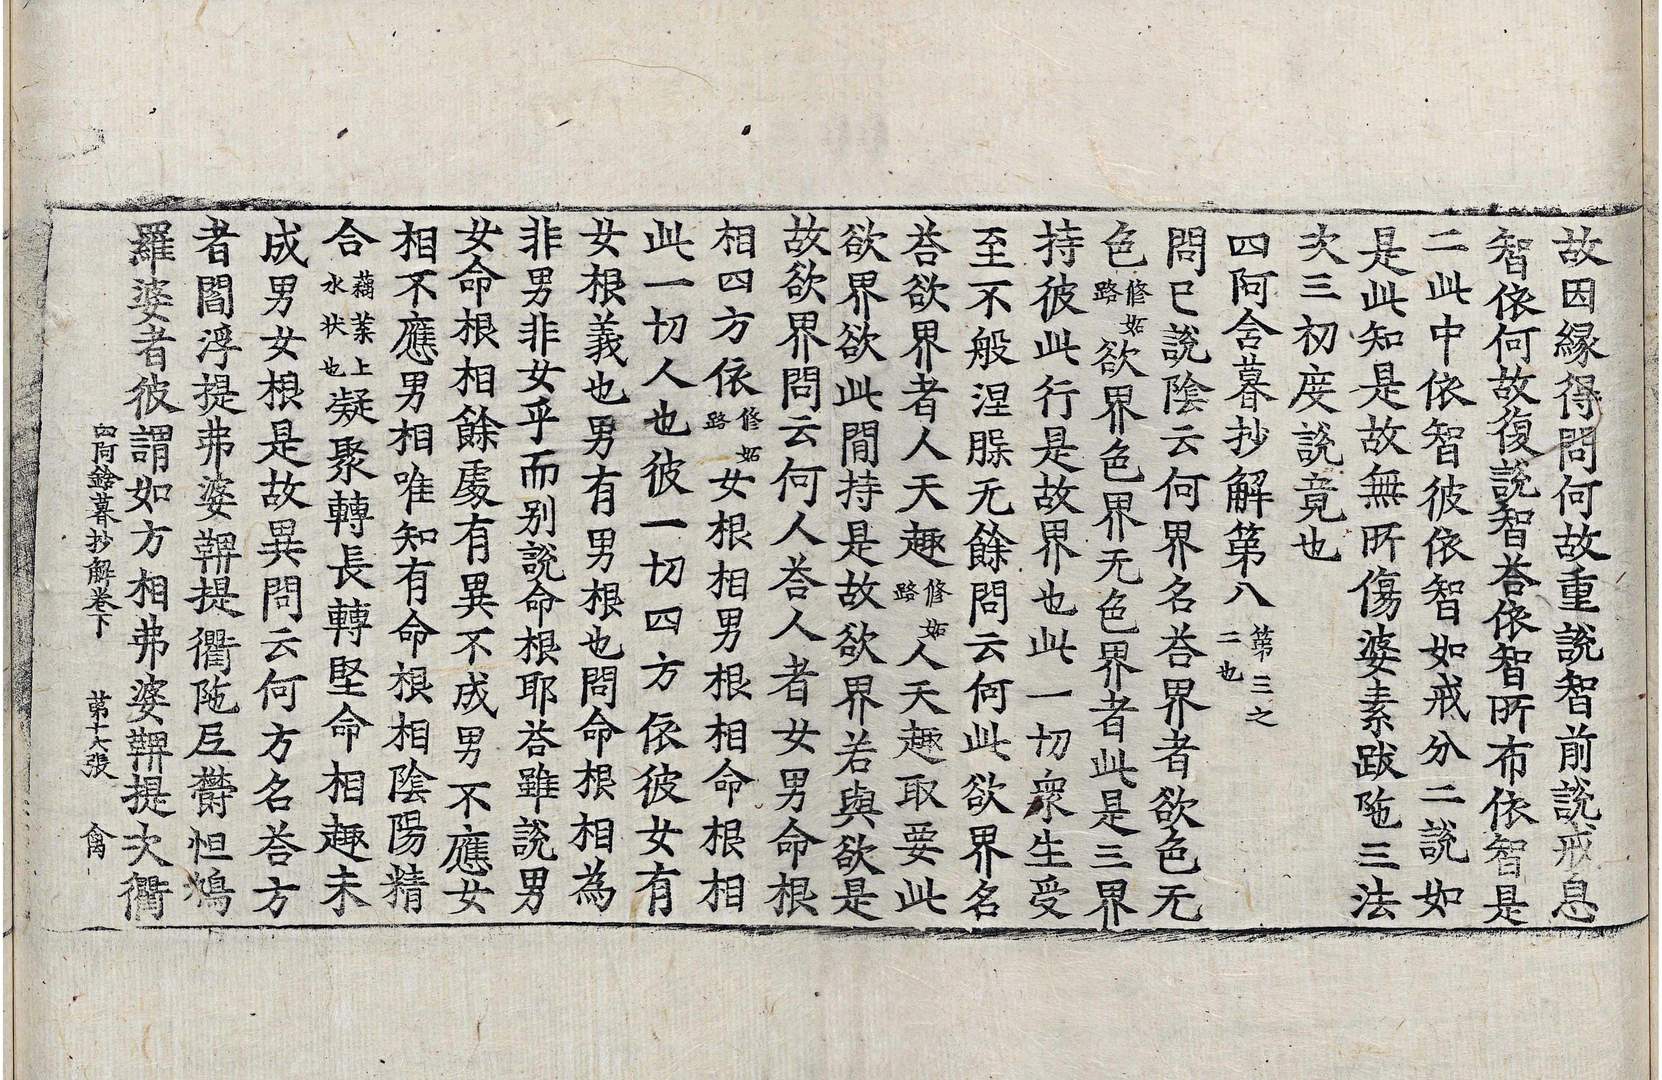 故因緣得問何故重說智前說戒息
智依何故復說智荅依智所布依智是
二此中依智彼依智如戒分二說如
是此知是故無所傷婆素跋陁三法
次三初度說竟也
四阿含暮抄解第八第三之二也
問已說陰云何界名荅界者欲色无
色修妬路欲界色界无色界者此是三界
持彼此行是故界也此一切衆生受
至不般涅𣧑无餘問云何此欲界名
荅欲界者人天趣修妬路人天趣取要此
欲界欲此閒持是故欲界若與欲是
故欲界問云何人荅人者女男命根
相四方依修妬路女根相男根相命根相
此一切人也彼一切四方依彼女有
女根義也男有男根也問命根相為
非男非女乎而别說命根耶荅雖說男
女命根相餘處有異不成男不應女
相不應男相唯知有命根相陰陽精
合藕葉上水状也凝聚轉長轉堅命相趣未
成男女根是故異問云何方名荅方
者閻浮提弗婆鞞提衢陁尼欝怛鳩
羅婆者彼謂如方相弗婆鞞提次衢
四阿鋡暮抄解卷下　第十六張　禽